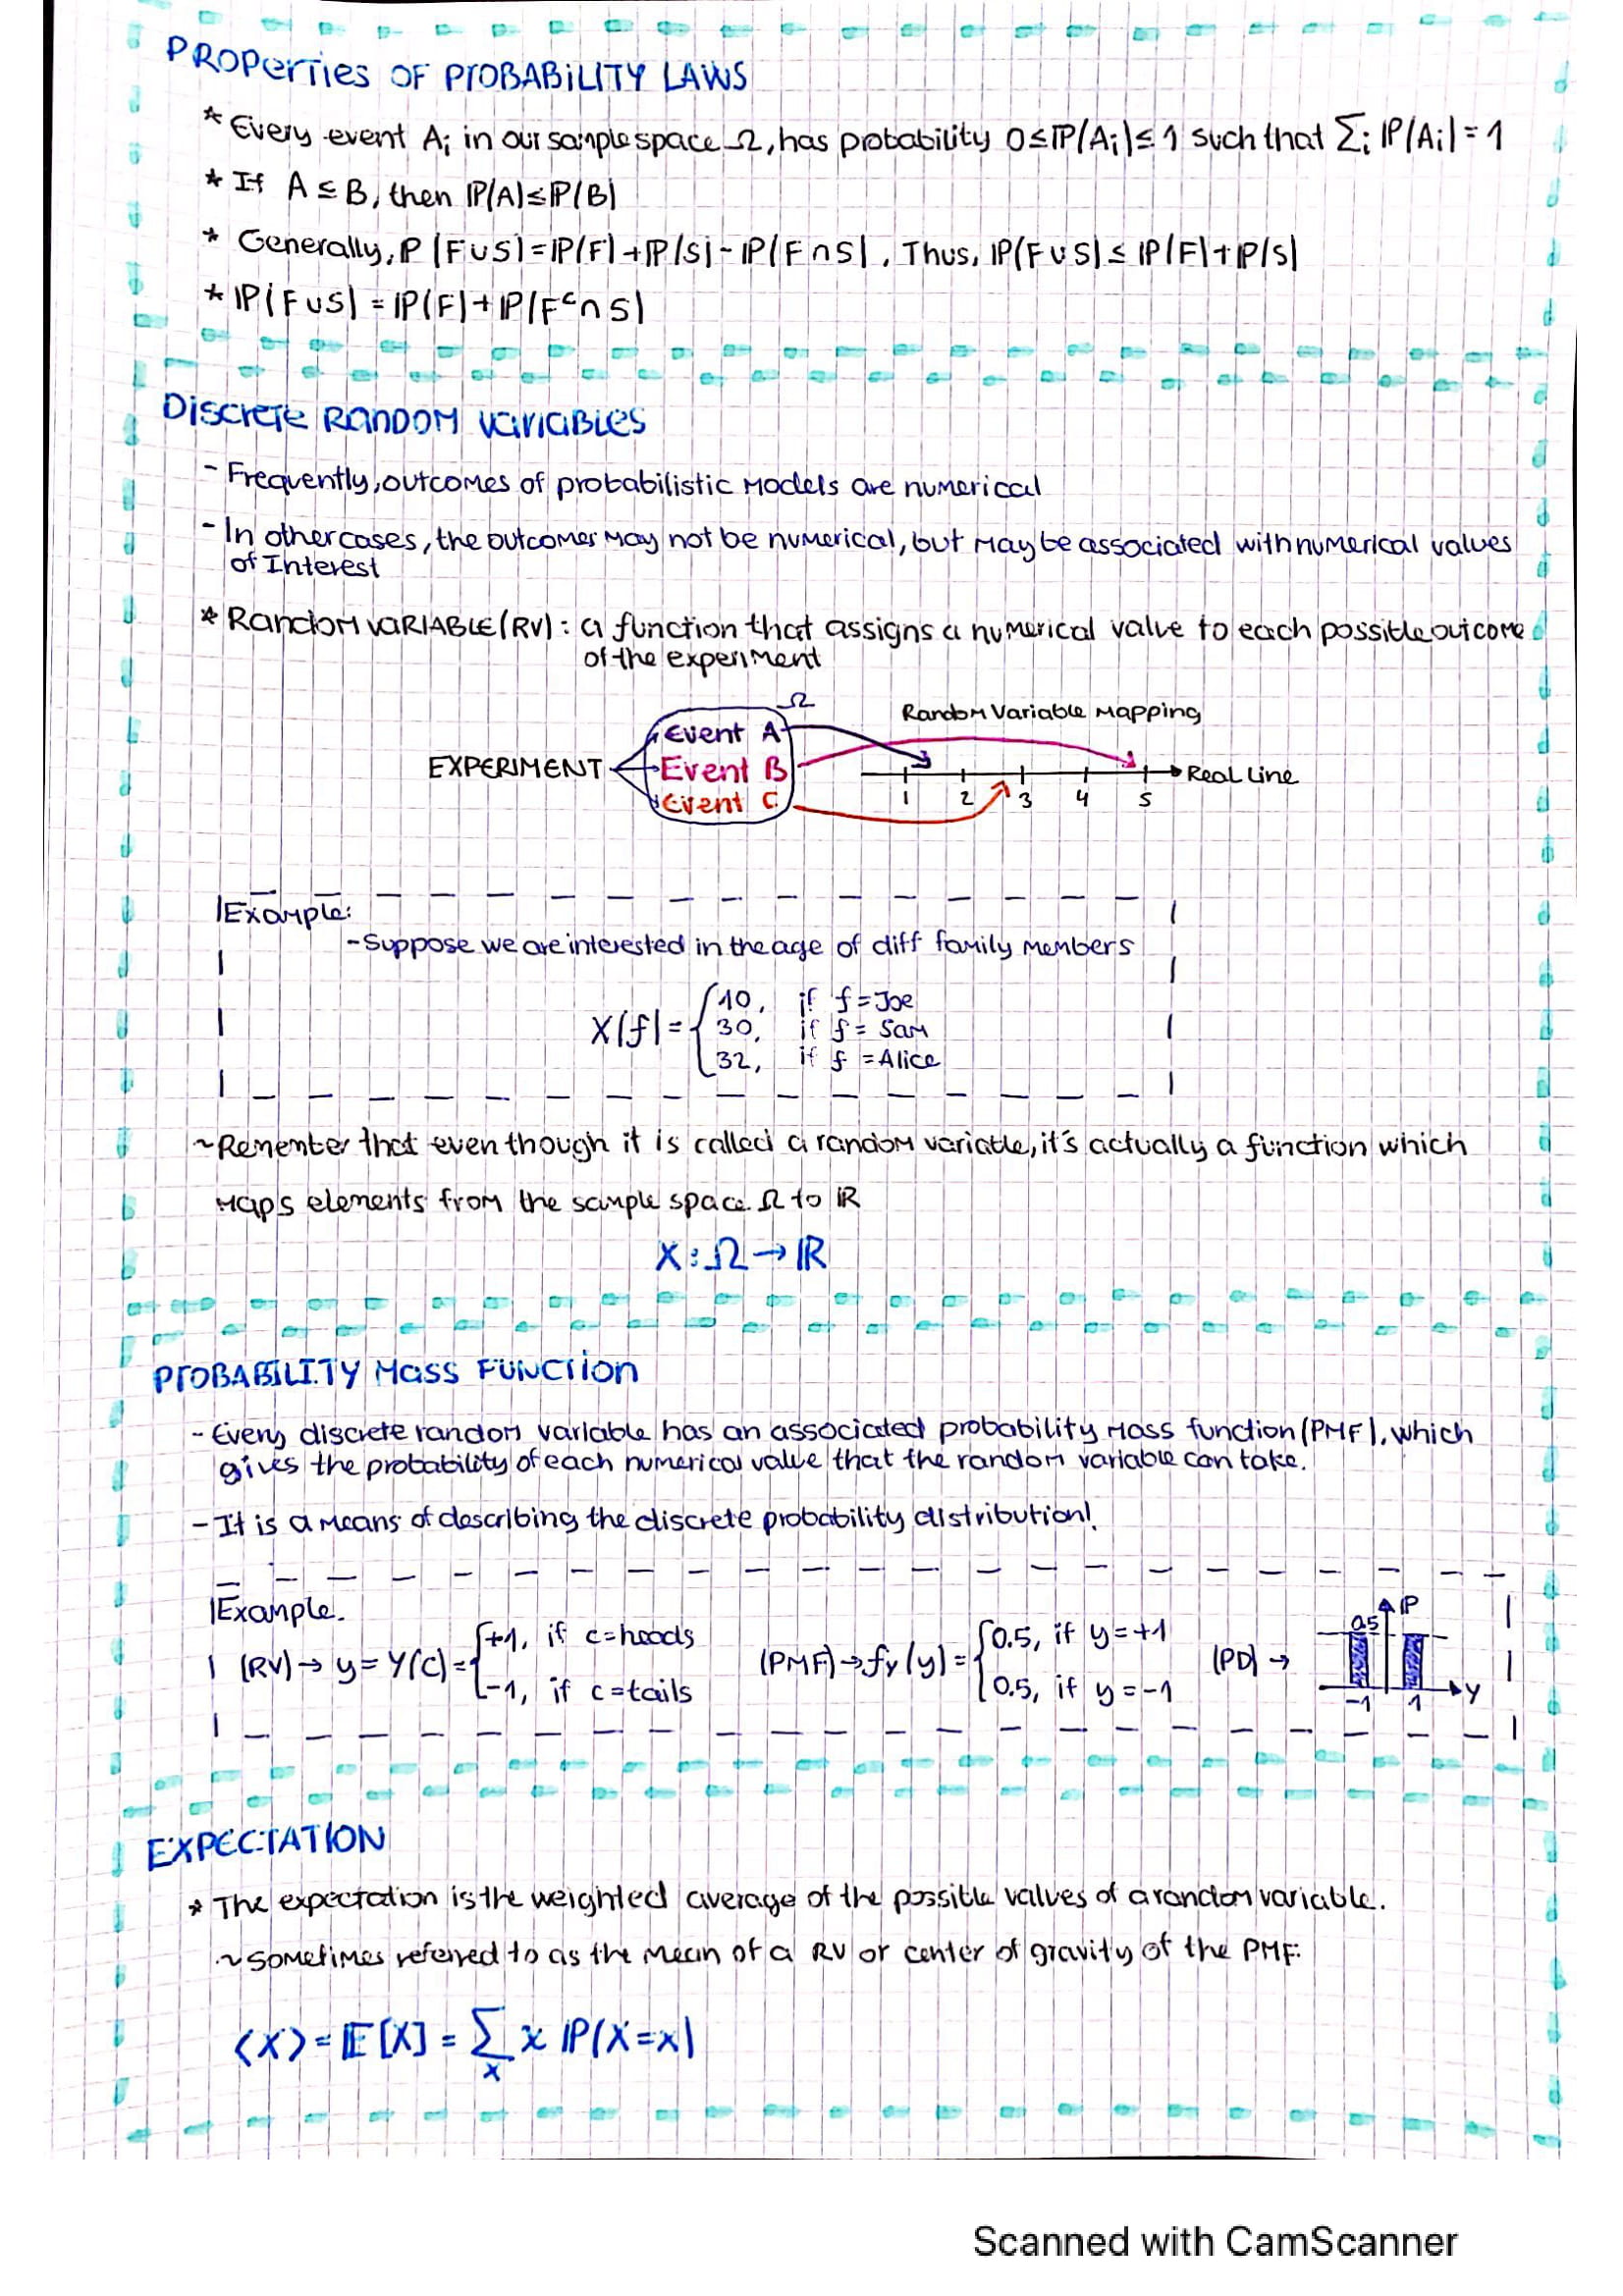 PROPERTIES OF PROBABILITY LAWS
* Every event Aᵢ in our sample space Ω, has probability 0≤ℙ(Aᵢ)≤1 such that Σᵢ ℙ(Aᵢ)=1
* If A⊆B, then ℙ(A)≤ℙ(B)
* Generally, ℙ(F∪S)=ℙ(F)+ℙ(S)-ℙ(F∩S), Thus, ℙ(F∪S)≤ℙ(F)+ℙ(S)
* ℙ(F∪S)=ℙ(F)+ℙ(Fᶜ∩S)
DISCRETE RANDOM VARIABLES
- Frequently, outcomes of probabilistic models are numerical
- In other cases, the outcomes may not be numerical, but may be associated with numerical values
of Interest
* Random VARIABLE(RV): a function that assigns a numerical value to each possible outcome
of the experiment
Ω
Random Variable Mapping
Event A
EXPERIMENT
Event B
Event C
Real Line
1 2 3 4 5
Example:
- Suppose we are interested in the age of diff family members
X(f)= { 10, if f=Joe
30, if f=Sam
32, if f=Alice
~Remember that even though it is called a random variable, it's actually a function which
maps elements from the sample space Ω to ℝ
X:Ω→ℝ
PROBABILITY MASS FUNCTION
- Every discrete random variable has an associated probability mass function (PMF), which
gives the probability of each numerical value that the random variable can take.
- It is a means of describing the discrete probability distribution!
Example.
(RV)→ y=Y(C)= { +1, if c=heads
-1, if c=tails
(PMF)→ fy(y)= { 0.5, if y=+1
0.5, if y=-1
(PD)→
ℙ
0.5
-1 1 y
EXPECTATION
* The expectation is the weighted average of the possible values of a random variable.
~Sometimes referred to as the mean of a RV or center of gravity of the PMF:
⟨X⟩=𝔼[X]=Σₓ x ℙ(X=x)
Scanned with CamScanner